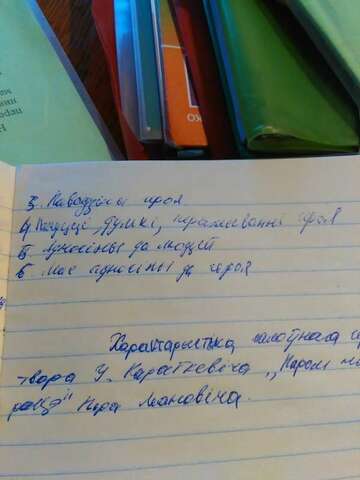 3. Паводзіны героя
4. Пачуцці, думкі, перажыванні героя
5. Адносіны да людзей
6. Мае адносіны да героя
Характарыстыка галоўнага
твора У. Караткевіча „Паром на
рацэ"